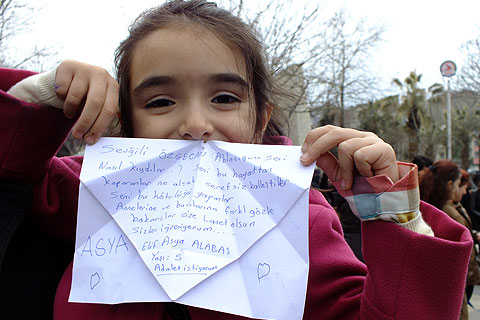 Sevgili ÖZGECAN Ablacığım seni
Nasıl kıydılar? Seni bu hayattan
koparanlar ne alçak şerefsiz kalleştiler
Seni bu kötülüğü yapanlar
Annelerine ve bacılarına farklı gözle
bakmışlar size lanet olsun
Sizden iğreniyorum...
ASYA
Elif Asya ALABAŞ
Yaşı: 5
Adalet istiyorum